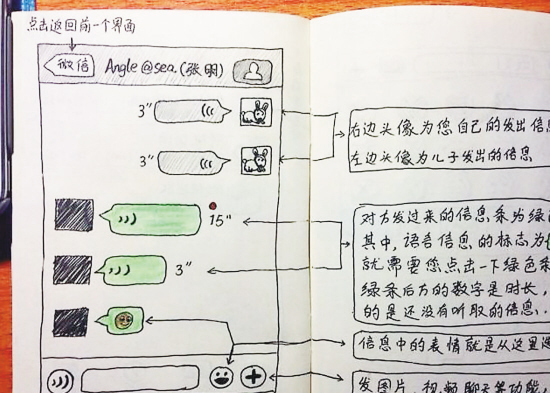 点击返回前一个界面
微信 Angle@sea.(张明)
3"
3"
15"
3"
右边头像为您自己的发出信息
左边头像为儿子发出的信息
对方发过来的信息条为绿
其中,语音信息的标志为
就需要您点击一下绿色条
绿条后方的数字是时长,
的是还没有听取的信息.
信息中的表情就是从这里
发图片、视频聊天等功能,